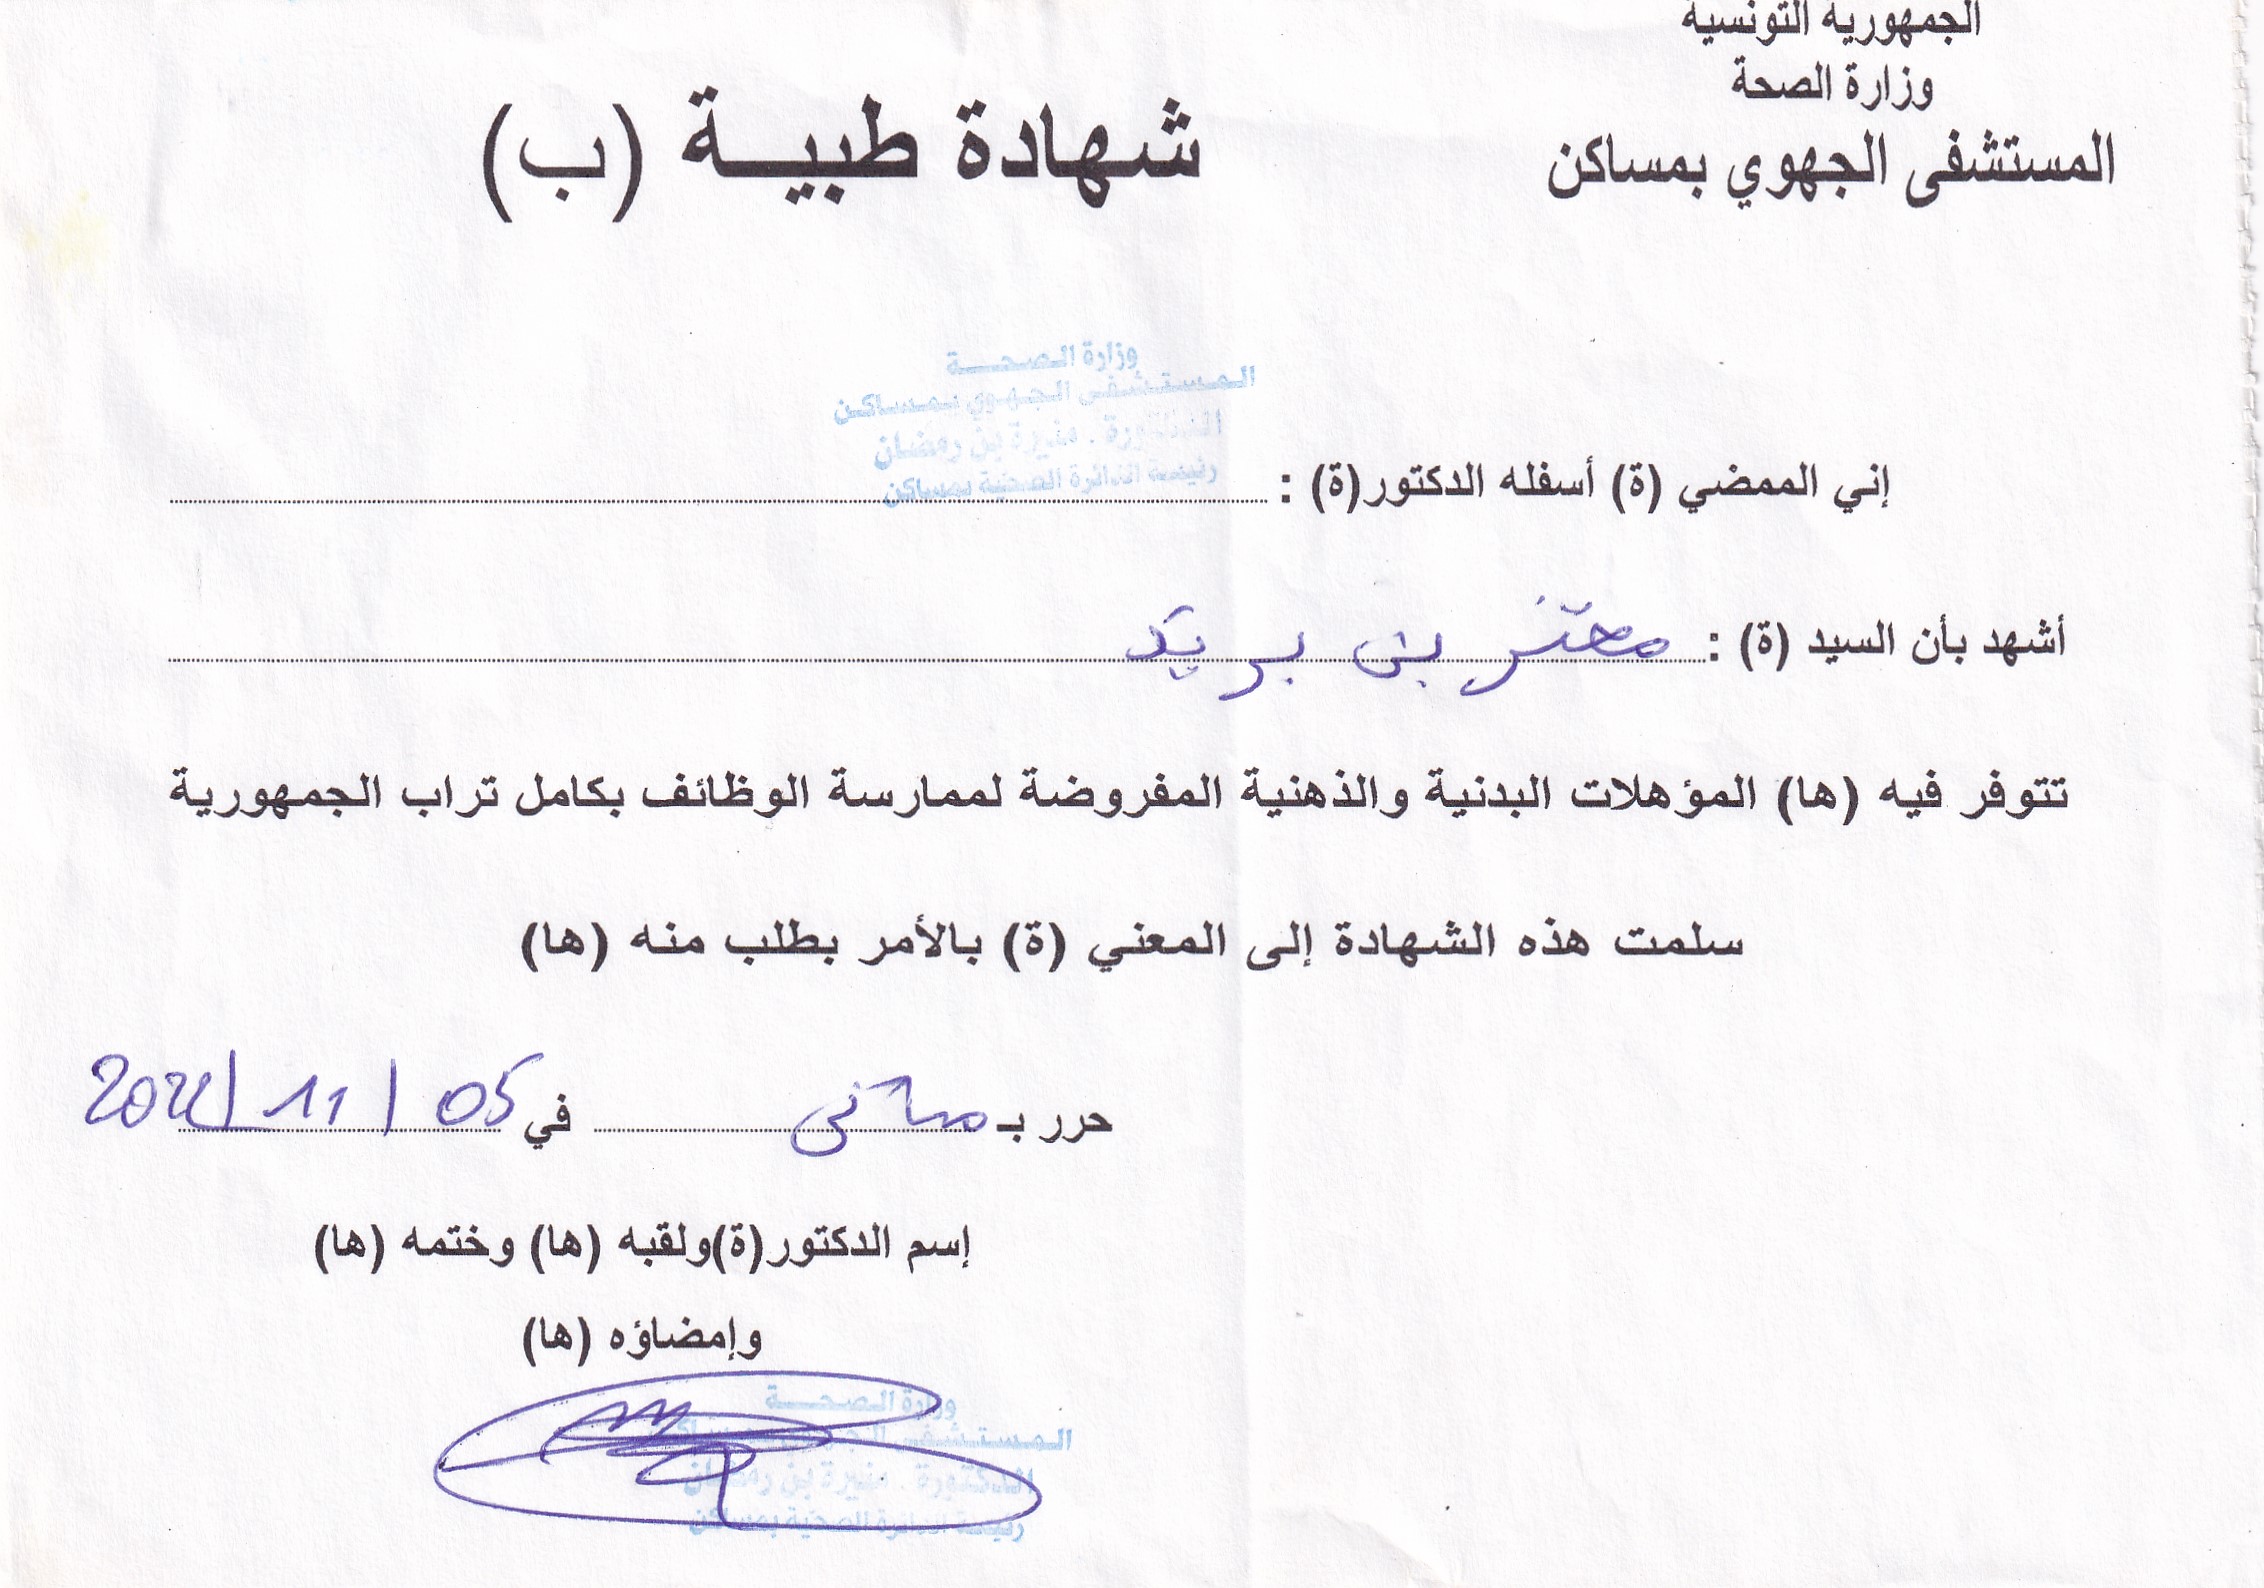 الجمهورية التونسية
وزارة الصحة
المستشفى الجهوي بمساكن
شهادة طبية (ب)
وزارة الصحة
المستشفى الجهوي بمساكن
الدكتورة . منيرة بن رمضان
رئيسة الدائرة الصحية بمساكن
إني الممضي (ة) أسفله الدكتور(ة) :
أشهد بأن السيد (ة) : معتز بن بريك
تتوفر فيه (ها) المؤهلات البدنية والذهنية المفروضة لممارسة الوظائف بكامل تراب الجمهورية
سلمت هذه الشهادة إلى المعني (ة) بالأمر بطلب منه (ها)
حرر بـ مساكن في 05 / 11 /
إسم الدكتور(ة)ولقبه (ها) وختمه (ها)
وإمضاؤه (ها)
وزارة الصحة
المستشفى الجهوي بمساكن
الدكتورة . منيرة بن رمضان
رئيسة الدائرة الصحية بمساكن